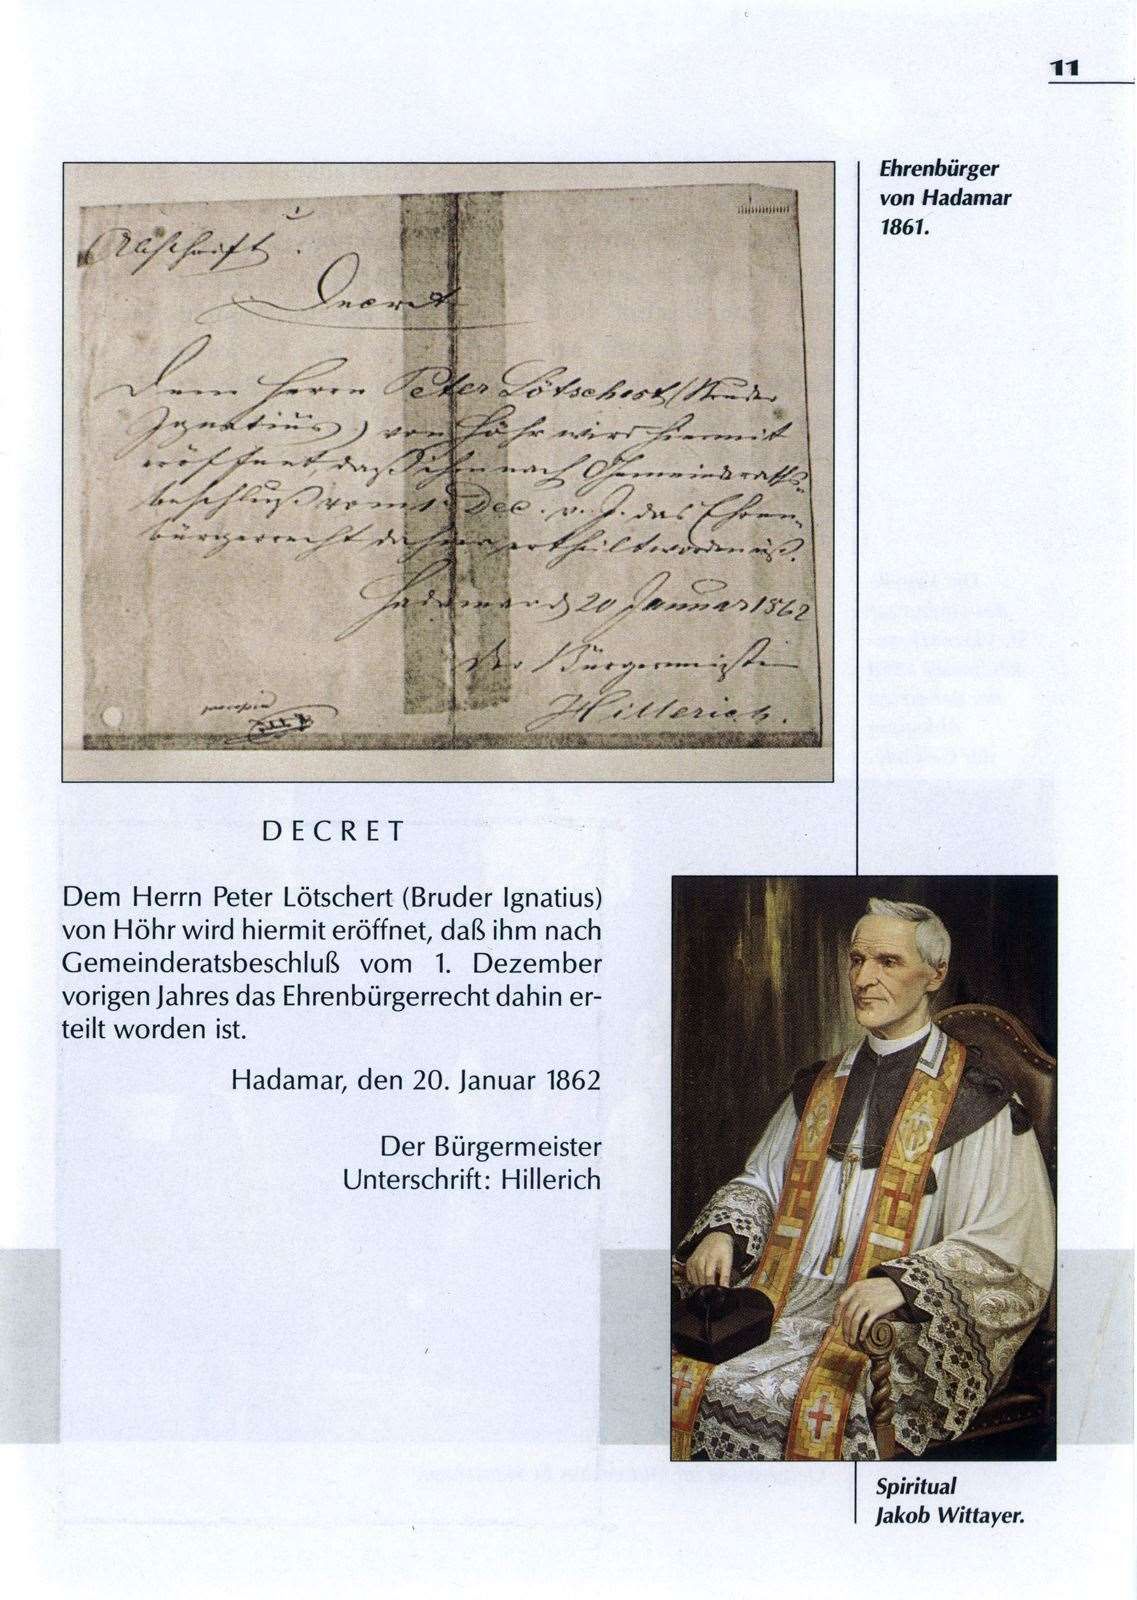 11
Ehrenbürger
von Hadamar
1861.
Abschrift.
Decret
Dem Herrn Peter Lötschert (Bruder
Ignatius) von Höhr wird hiermit
eröffnet, daß ihm nach Gemeinderaths-
beschluß vom 1. Dec. v. J. das Ehren-
bürgerrecht dahier ertheilt worden ist.
Hadamar d 20 Januar 1862
Der Bürgermeister
Hillerich.
DECRET
Dem Herrn Peter Lötschert (Bruder Ignatius)
von Höhr wird hiermit eröffnet, daß ihm nach
Gemeinderatsbeschluß vom 1. Dezember
vorigen Jahres das Ehrenbürgerrecht dahin er-
teilt worden ist.
Hadamar, den 20. Januar 1862
Der Bürgermeister
Unterschrift: Hillerich
Spiritual
Jakob Wittayer.